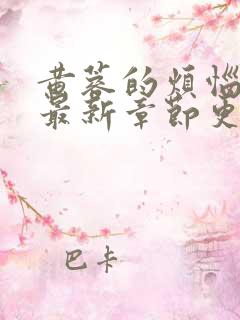 黄蓉的烦恼
最新章节更
巴卡